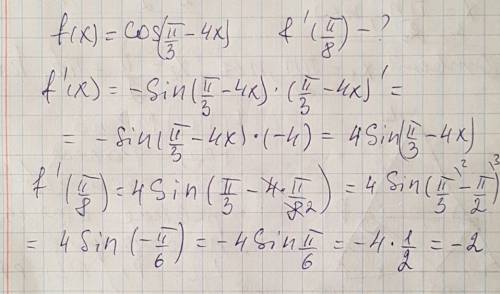 f(x) = cos(π/3 - 4x)   f'(π/8) - ?
f'(x) = -sin(π/3 - 4x) · (π/3 - 4x)' =
= -sin(π/3 - 4x) · (-4) = 4 sin(π/3 - 4x)
f'(π/8) = 4 sin(π/3 - 4·π/8 2) = 4 sin(π/3 \2 - π/2 \3)
= 4 sin(-π/6) = -4 sin π/6 = -4 · 1/2 = -2